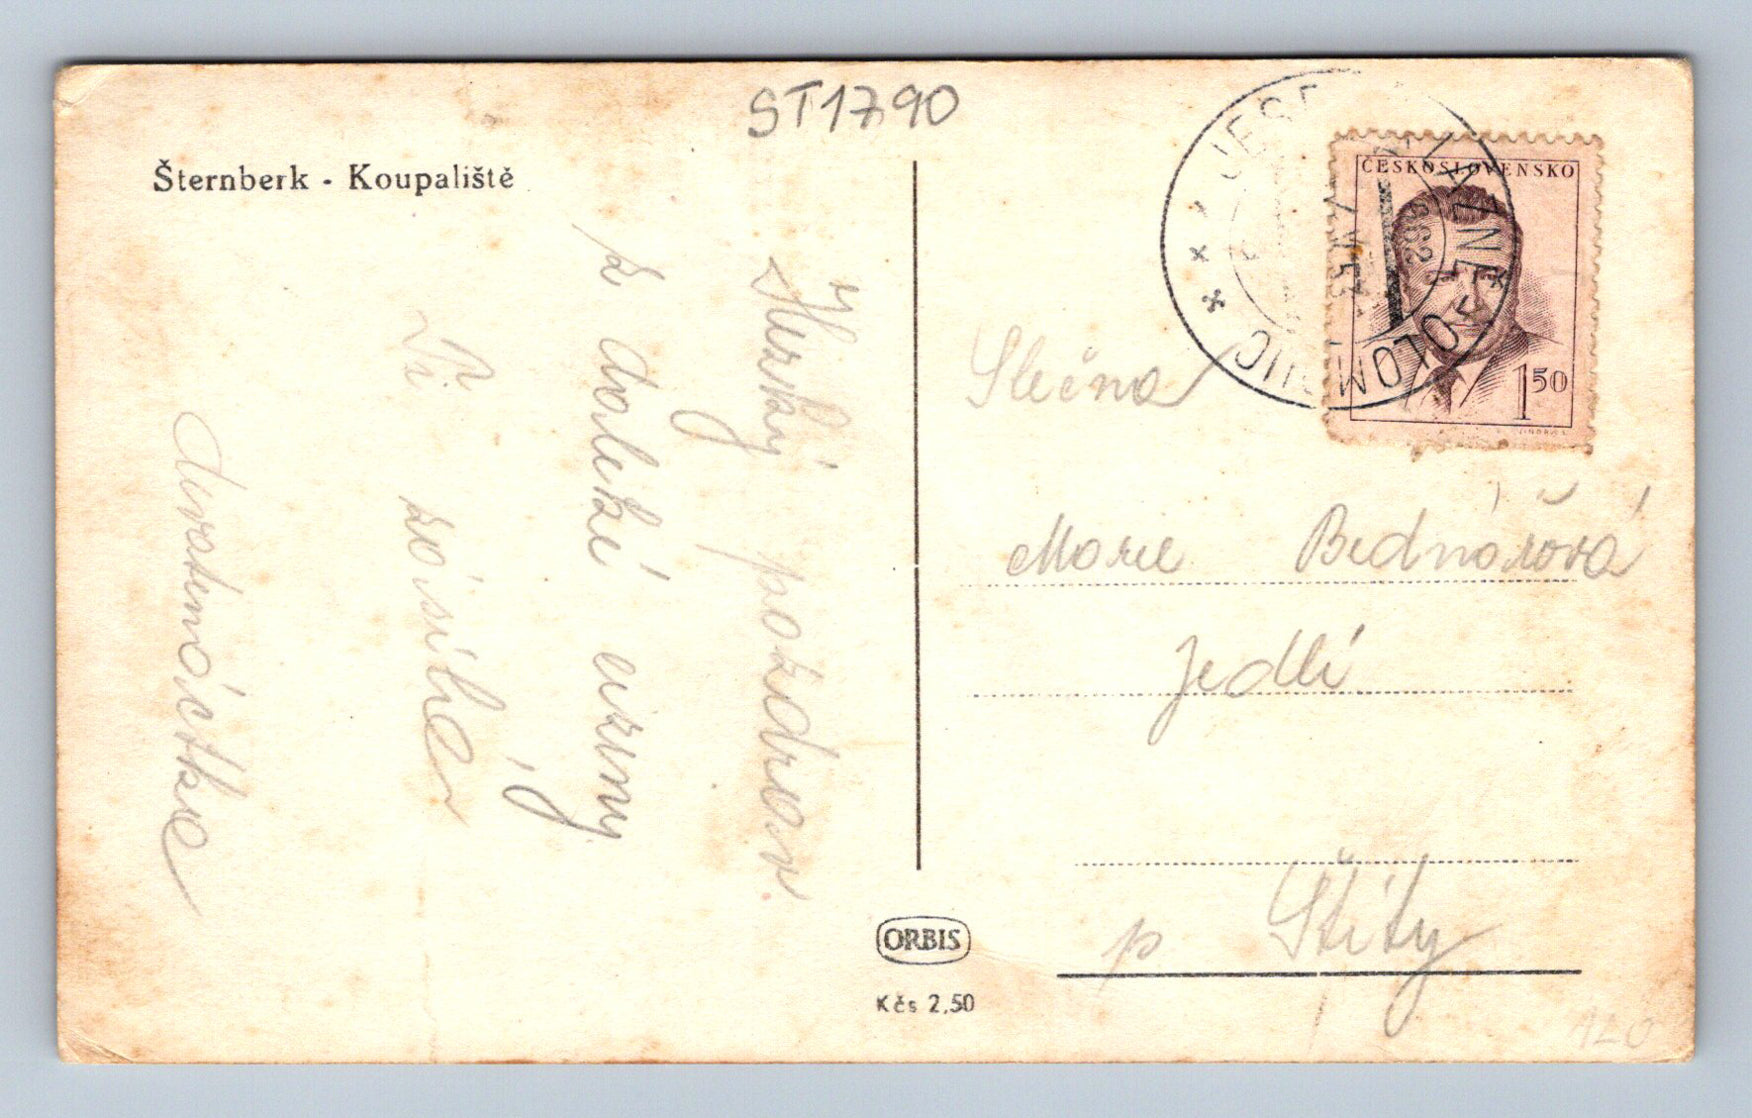 ST1790
Šternberk - Koupaliště
Hezký pozdrav
z daleké
Ti zasílá
ČESKOSLOVENSKO
150
OLOMOUC
Slečna
Marie Bednářová
Jedlí
p Štíty
ORBIS
Kčs 2,50
120